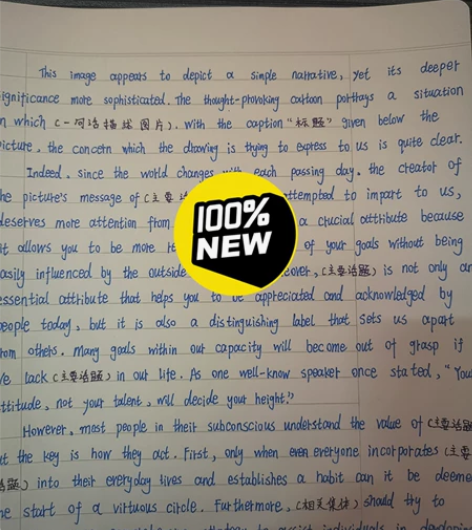 This image appears to depict a simple narrative, yet its deeper
ignificance more sophisticated. The thought-provoking cartoon portrays a situation
n which (一句话描绘图片). With the caption "标题" given below the
icture, the concern which the drawing is trying to express to us is quite clear.
Indeed, since the world changes with each passing day, the creator of
he picture's message of (主要话 ttempted to impart to us,
deserves more attention from a crucial attribute because
it allows you to be more of your goals without being
asily influenced by the outside over, (主要话题) is not only an
essential attribute that helps you to be appreciated and acknowledged by
eople today, but it is also a distinguishing label that sets us apart
rom others. Many goals within our capacity will become out of grasp if
we lack (主要话题) in our life. As one well-know speaker once stated, "You
ttitude, not your talent, will decide your height."
However, most people in their subconscious understand the value of (主要话题
ut the key is how they act. First, only when even everyone incorporates (主要
话题) into their everyday lives and establishes a habit can it be deeme
he start of a virtuous circle. Furthermore, (相关集体) should try to
100%
NEW